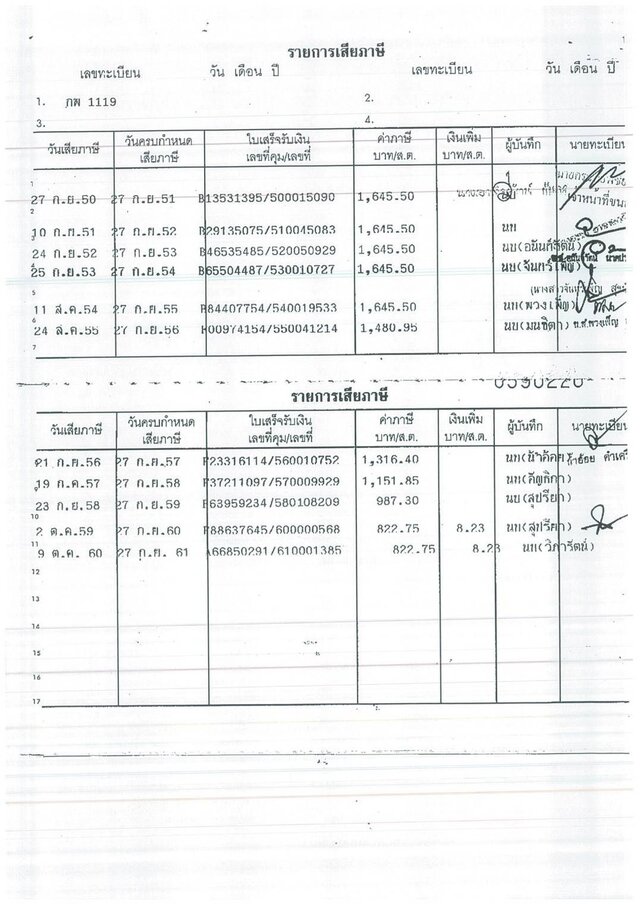 รายการเสียภาษี
เลขทะเบียน วัน เดือน ปี เลขทะเบียน วัน เดือน ปี
1. กพ 1119 2.
3. 4.
วันเสียภาษี วันครบกำหนดเสียภาษี ใบเสร็จรับเงินเลขที่คุม/เลขที่ ค่าภาษีบาท/ส.ต. เงินเพิ่มบาท/ส.ต. ผู้บันทึก นายทะเบียน
1
27 ก.ย.50 27 ก.ย.51 B13531395/500015090 1,645.50
2
10 ก.ย.51 27 ก.ย.52 B29135075/510045083 1,645.50 นบ
24 ก.ย.52 27 ก.ย.53 B46535485/520050929 1,645.50
25 ก.ย.53 27 ก.ย.54 B65504487/530010727 1,645.50 นบ(จันทร์เพ็ญ)
5
11 ส.ค.54 27 ก.ย.55 84407754/540019533 1,645.50 นท(พวงเพ็ญ)
6
24 ส.ค.55 27 ก.ย.56 00974154/550041214 1,480.95 นบ(มนชิตา) น.ส.พวงเพ็ญ
7
0590220
รายการเสียภาษี
วันเสียภาษี วันครบกำหนดเสียภาษี ใบเสร็จรับเงินเลขที่คุม/เลขที่ ค่าภาษีบาท/ส.ต. เงินเพิ่มบาท/ส.ต. ผู้บันทึก นายทะเบียน
21 ก.ย.56 27 ก.ย.57 23316114/560010752 1,316.40
19 ก.ค.57 27 ก.ย.58 37211097/570009929 1,151.85
23 ก.ย.58 27 ก.ย.59 63959234/580108209 987.30 นบ(สุปรียา)
10
2 ต.ค.59 27 ก.ย.60 88637645/600000568 822.75 8.23 นท(สุปรียา)
11
9 ต.ค. 60 27 ก.ย. 61 66850291/610001385 822.75 8.23 นท(วิภารัตน์)
12
13
14
15
16
17